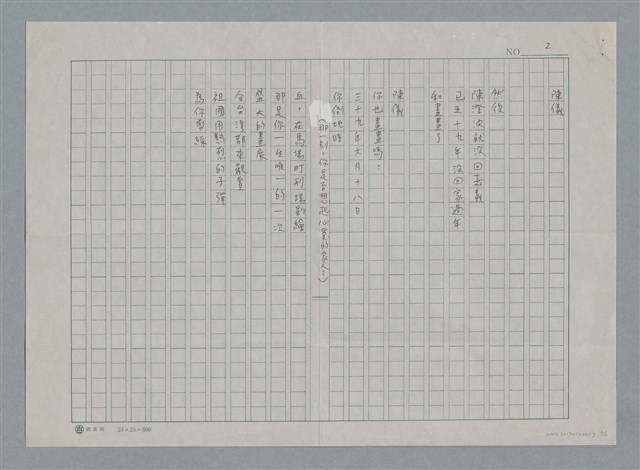 NO 2
陳儀
然後
陳澄波就沒回嘉義
已五十九年沒回家過年
和畫畫了
陳儀
你也畫畫嗎?
三十九年六月十八日
你倒地時
(那一刻,你是否想起心愛的家人?)
血,在馬場町刑場彩繪
那是你一生唯一的一次
盛大的畫展
全台灣都來觀賞
祖國用熱烈的子彈
為你剪綵
24×25=600